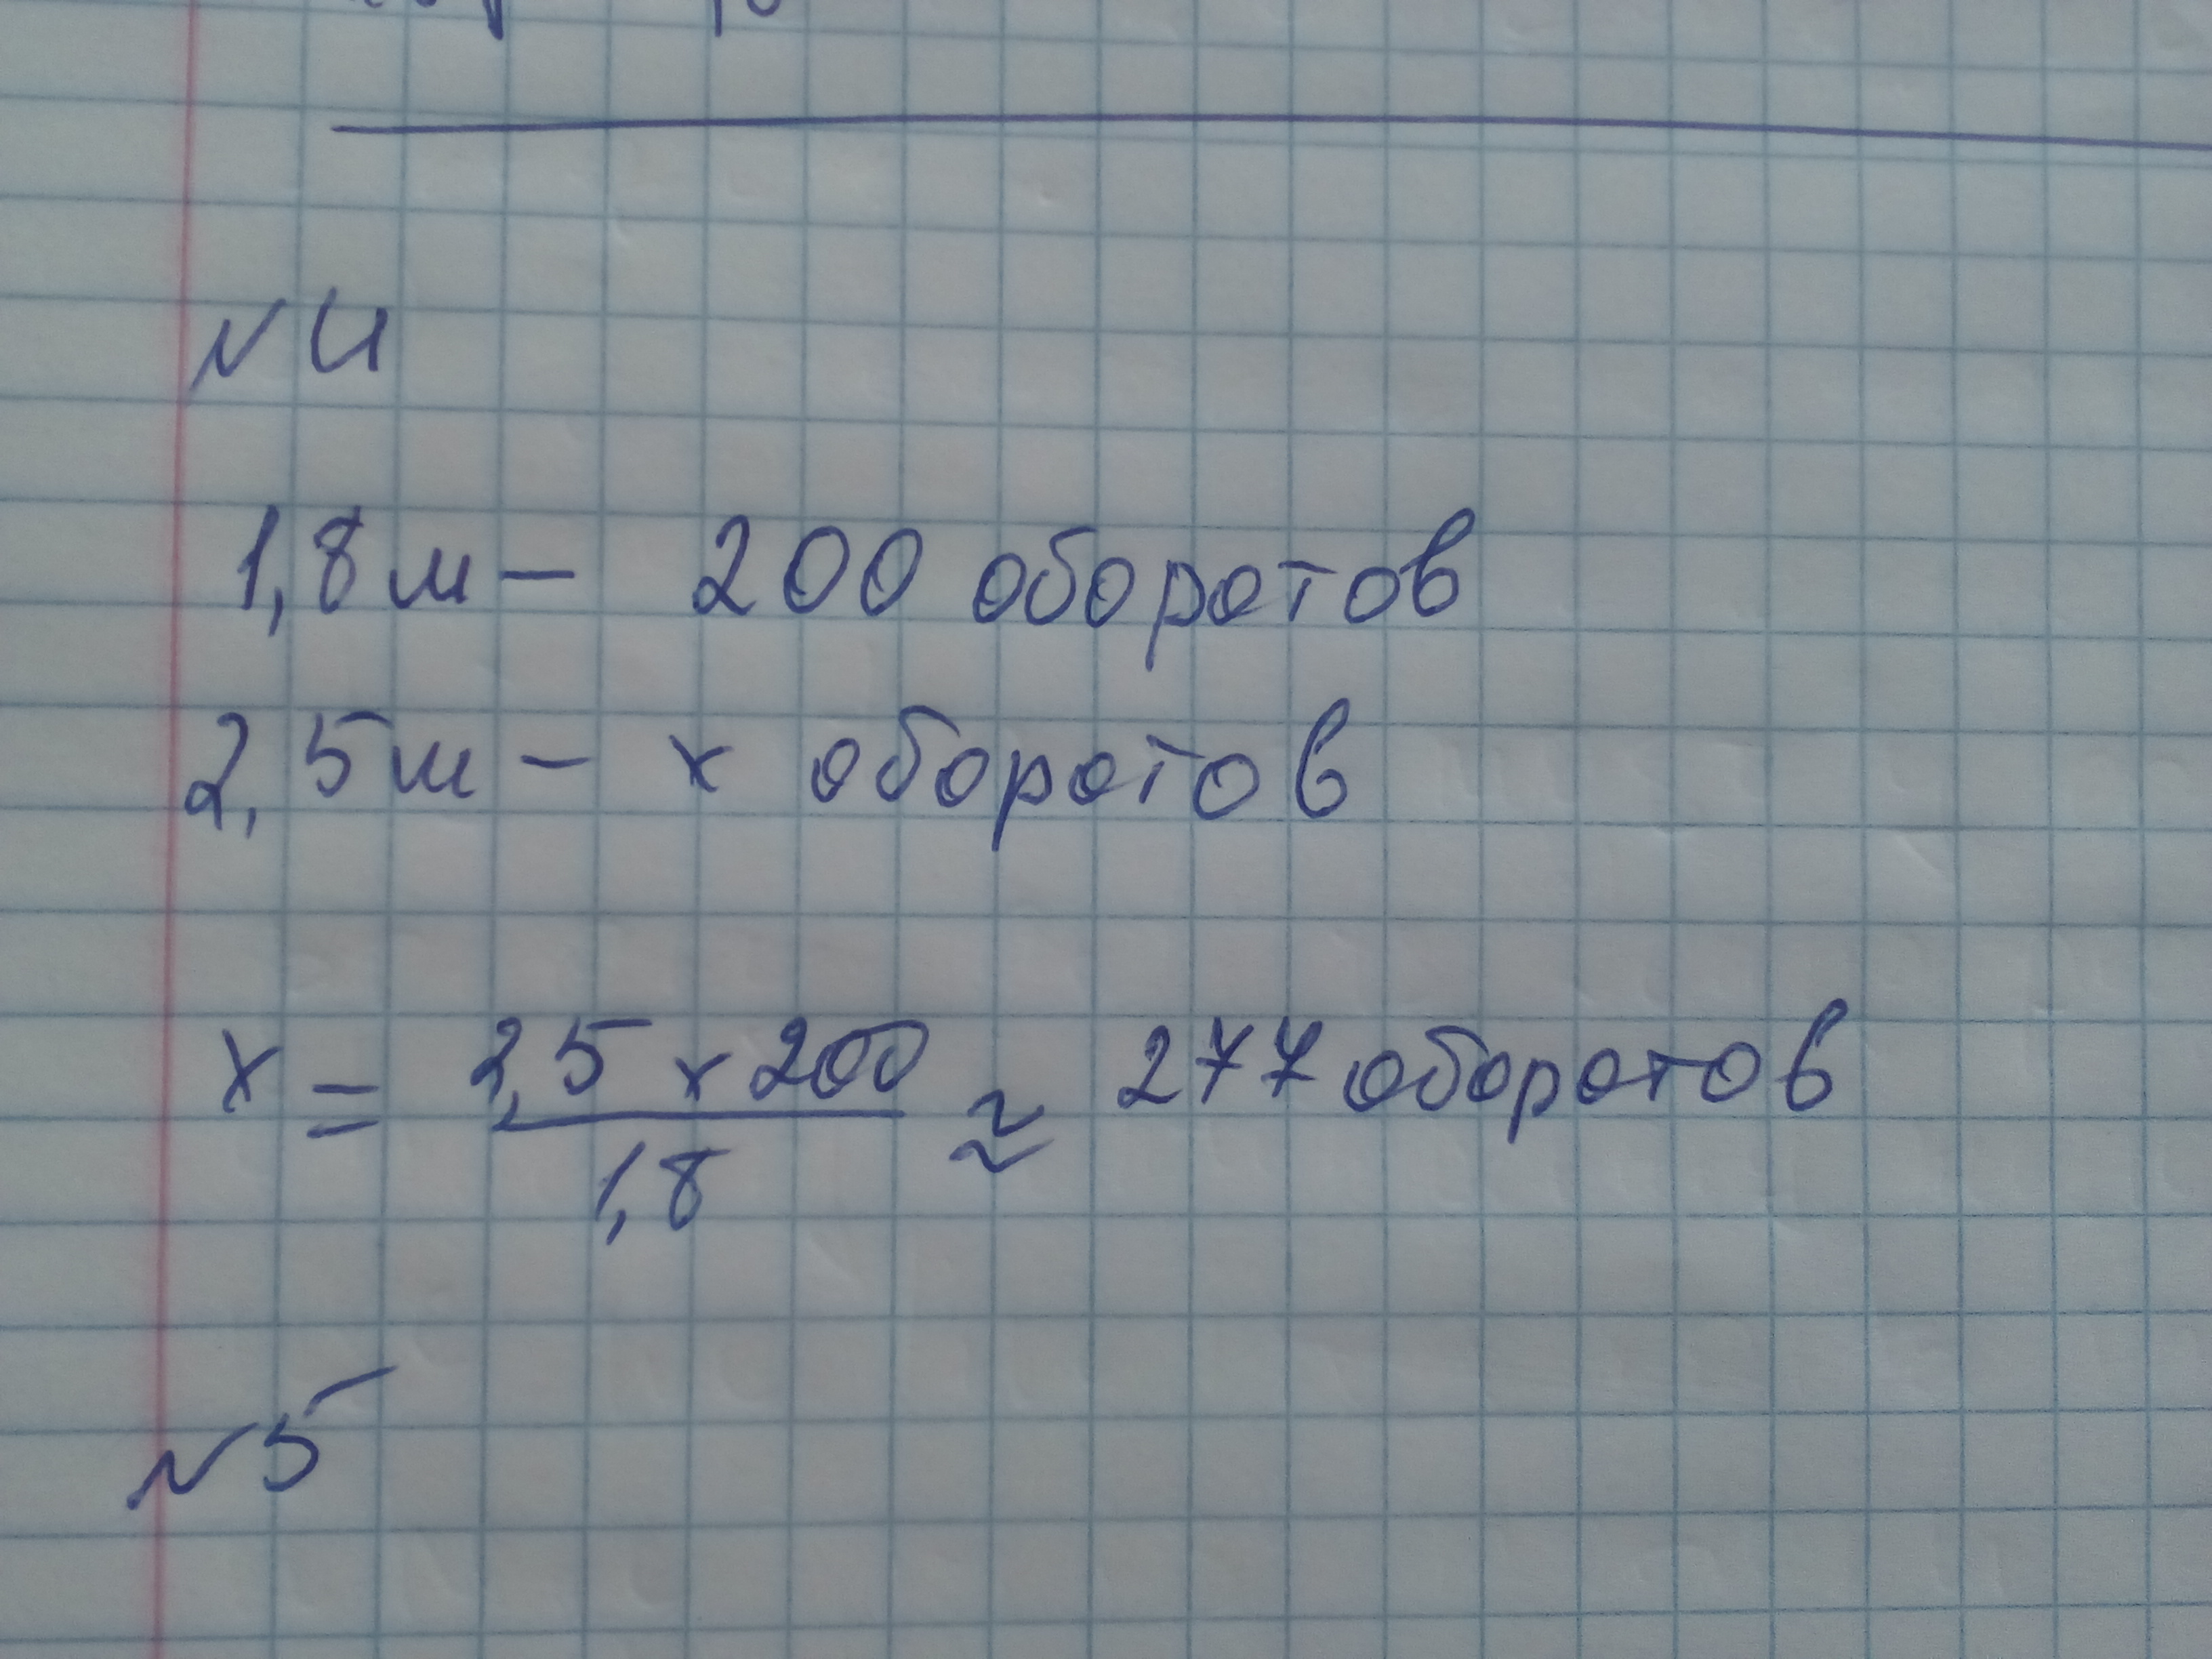 №4
1,8 м — 200 оборотов
2,5 м — х оборотов
х = 2,5 х 200 / 1,8 ≈ 277 оборотов
№5